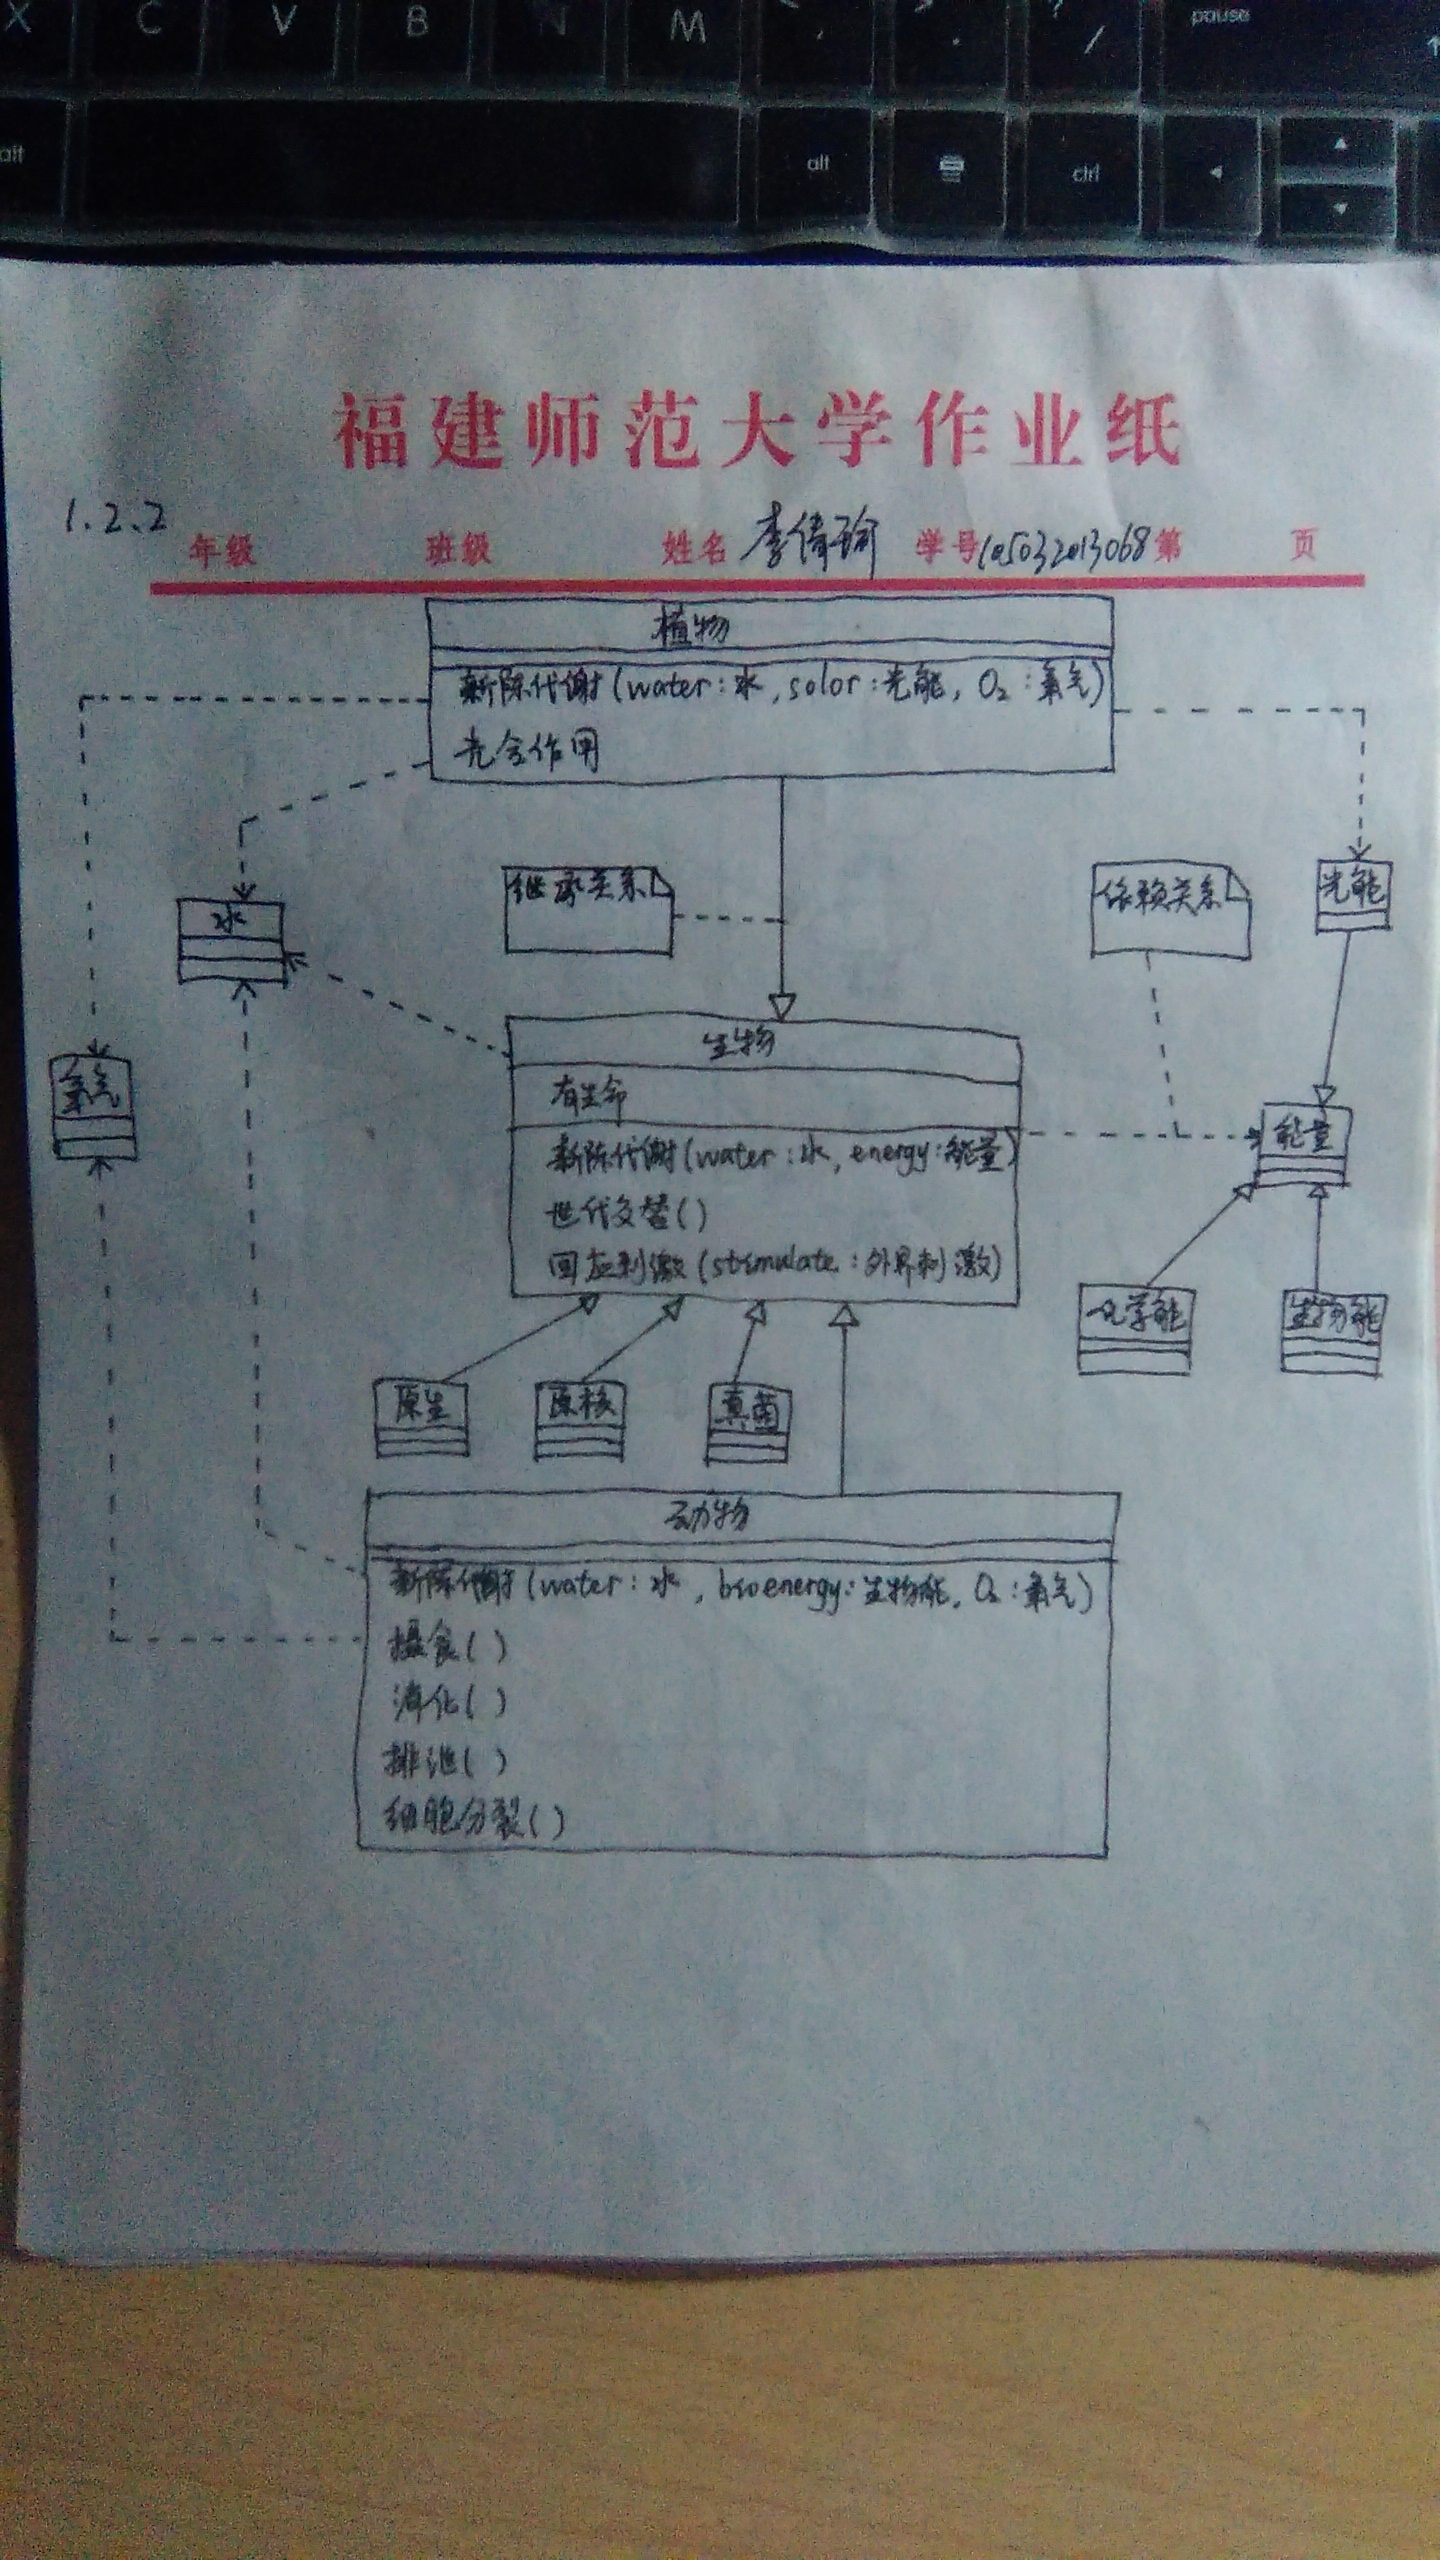 X C V B N M , . ? / pause
alt alt ctrl
福建师范大学作业纸
1.2.2
年级 班级 姓名 李倩瑜 学号 105032013068 第 页
植物
新陈代谢(water:水,solor:光能,O₂:氧气)
光合作用
继承关系
依赖关系
光能
水
生物
有生命
氧气
新陈代谢(water:水,energy:能量)
能量
世代交替()
回应刺激(stimulate:外界刺激)
化学能
生物能
原生
原核
真菌
动物
新陈代谢(water:水,bioenergy:生物能,O₂:氧气)
摄食()
消化()
排泄()
细胞分裂()